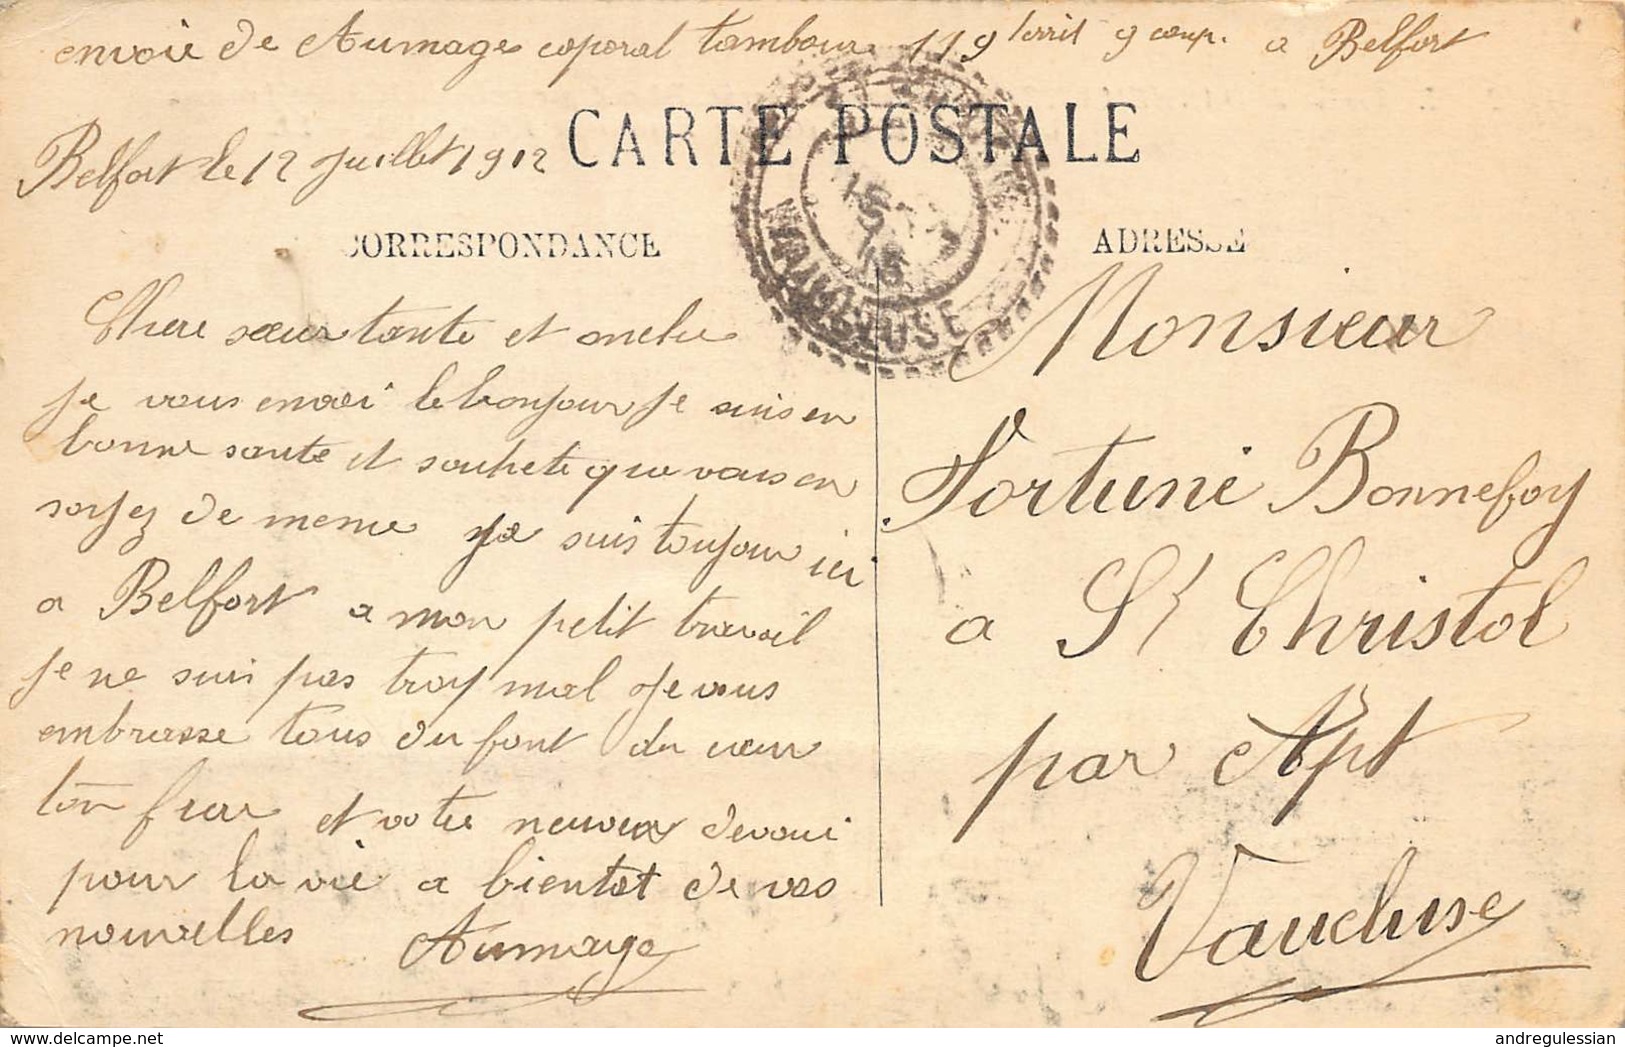 envoie de Aumage caporal tambour 119 territ 9 comp. a Belfort
CARTE POSTALE
Belfort le 12 juillet 1912
CORRESPONDANCE
ADRESSE
VAUCLUSE
Chere sœur tante et oncle
je vous envoi le bonjour je suis en
bonne sante et souhete que vous en
soyez de meme je suis toujour ici
a Belfort a mon petit travail
je ne suis pas trop mal je vous
embrasse tous du font du cœur
ton frere et votre neuveux devoué
pour la vie a bientot de vos
nouvelles Aumage
Monsieur
Fortuné Bonnefoy
a St Christol
par Apt
Vaucluse
andregulessian